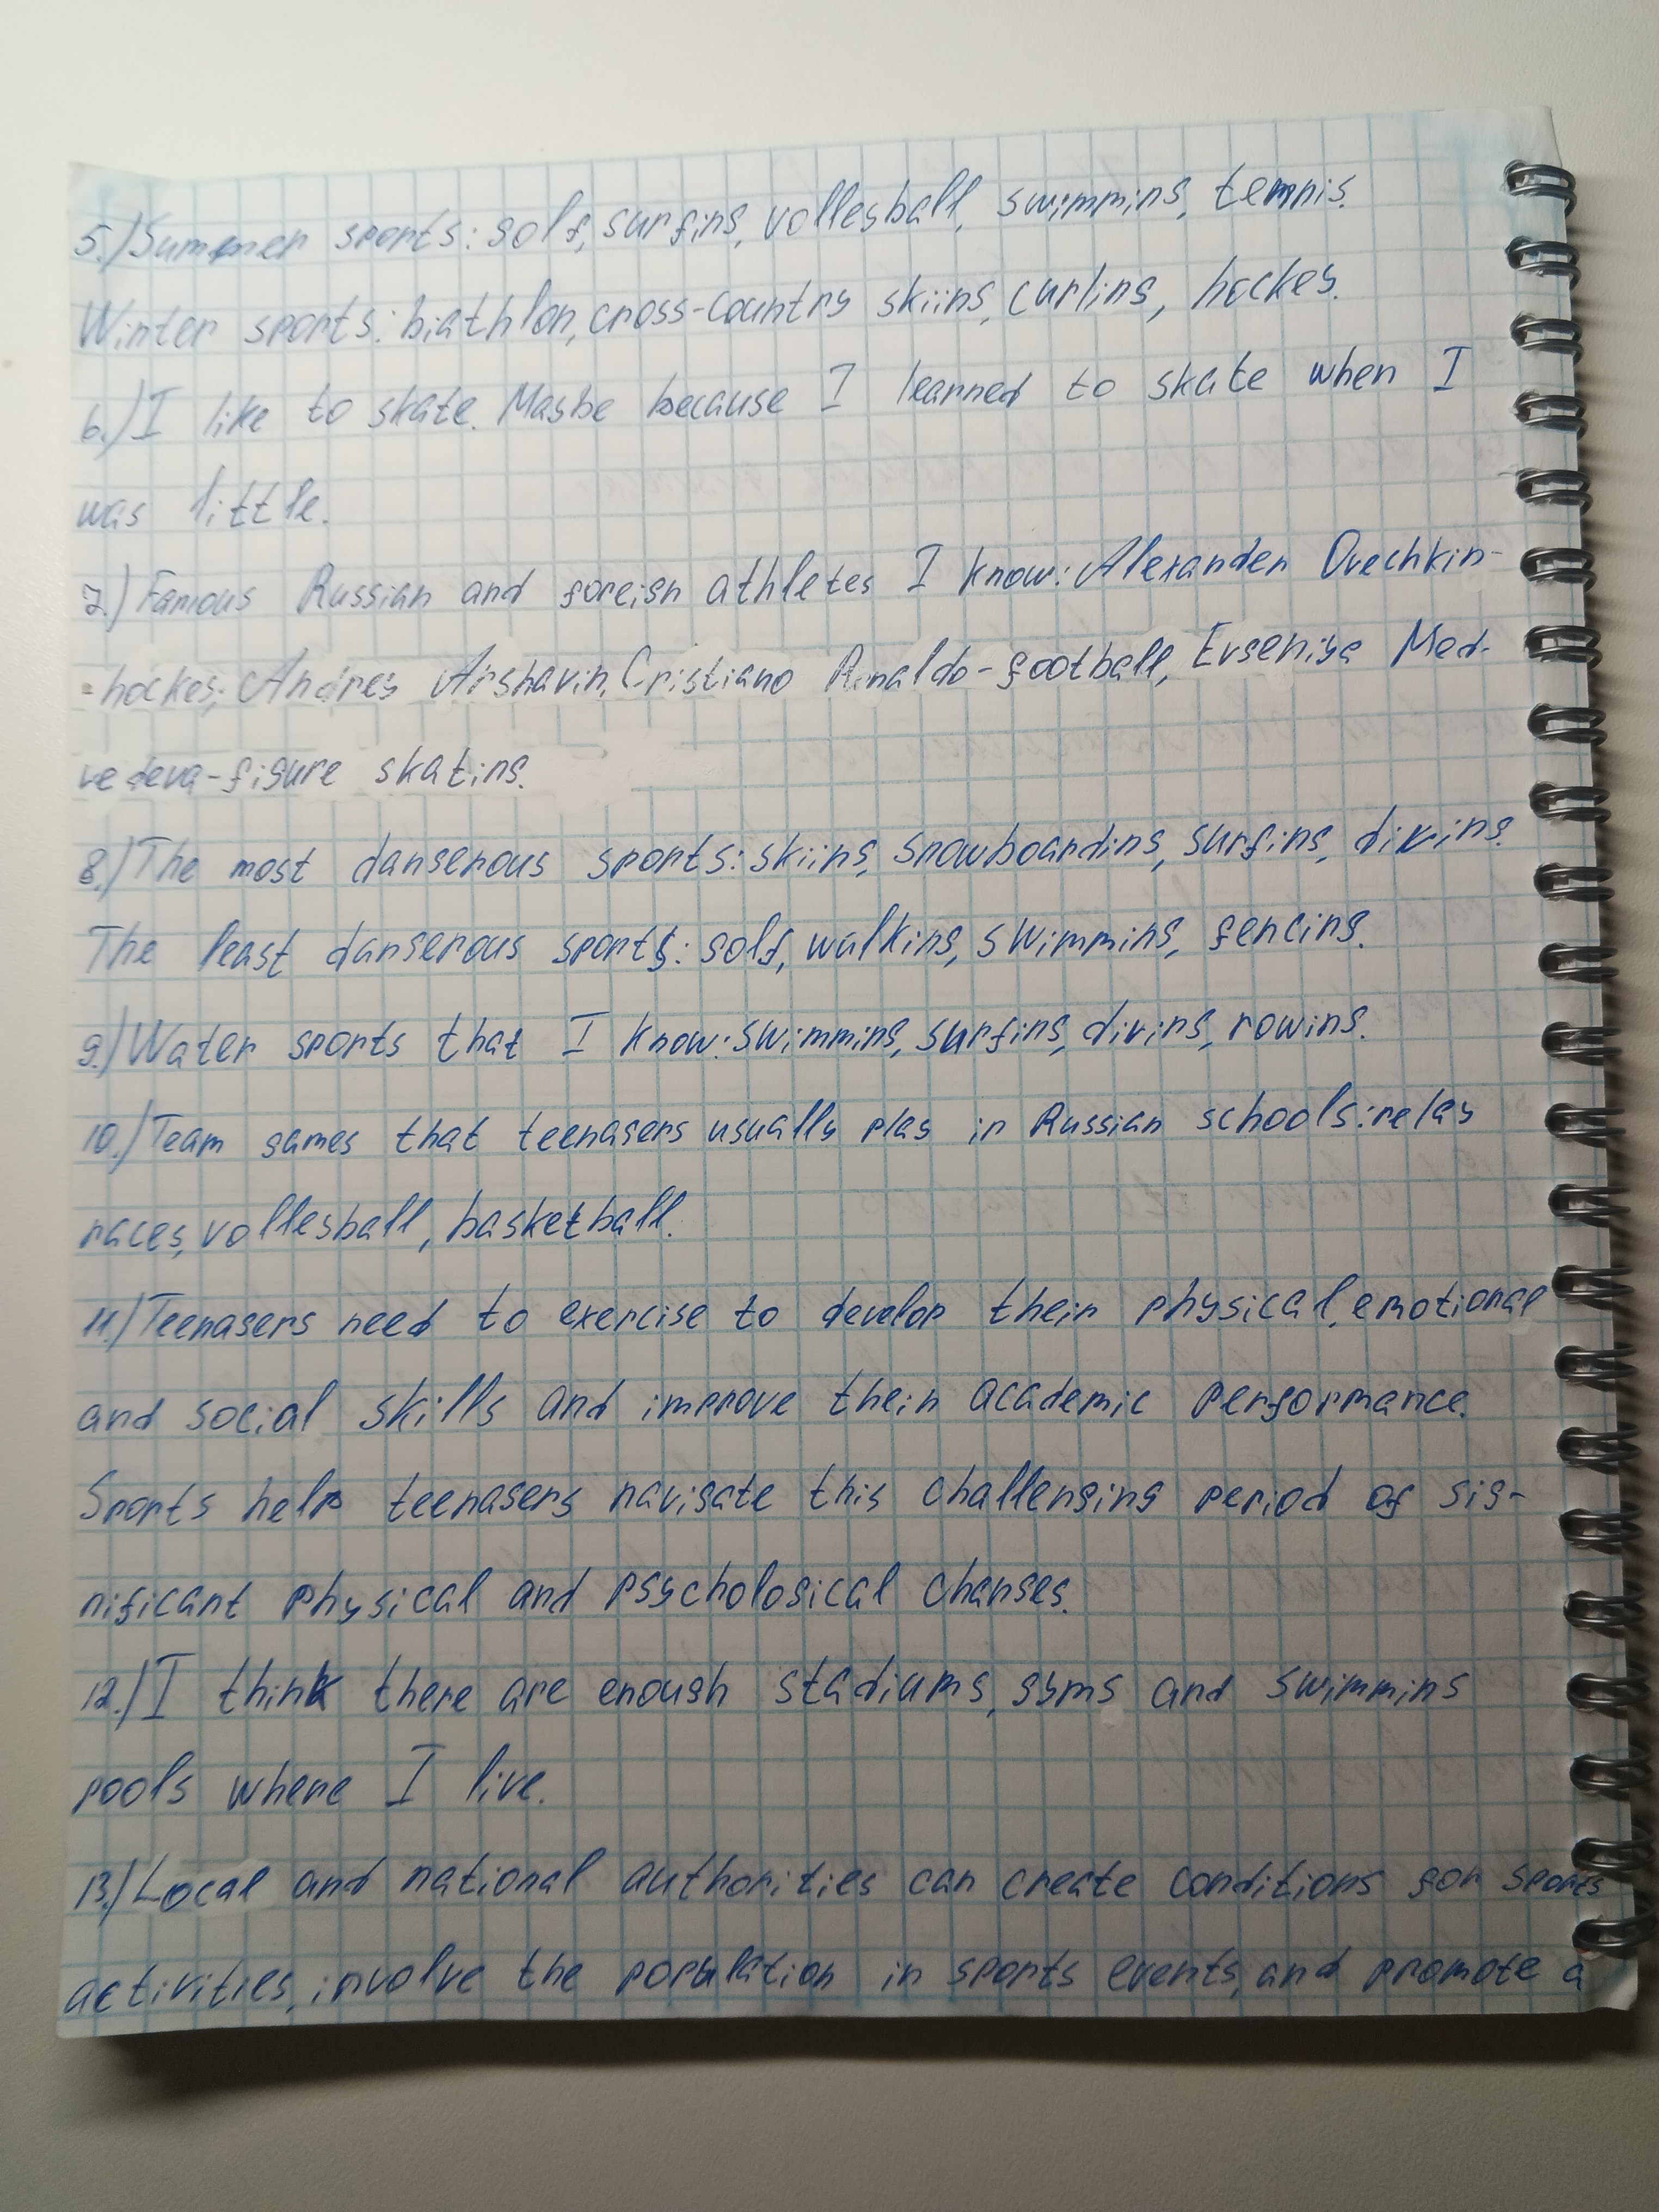 5.) Summer sports: golf, surfing, volleyball, swimming, tennis.
Winter sports: biathlon, cross-country skiing, curling, hockey.
6.) I like to skate. Maybe because I learned to skate when I
was little.
7.) Famous Russian and foreign athletes I know: Alexander Ovechkin-
-hockey; Andrey Arshavin, Cristiano Ronaldo-football, Evgeniya Med-
vedeva-figure skating.
8.) The most dangerous sports: skiing, snowboarding, surfing, diving.
The least dangerous sports: golf, walking, swimming, fencing.
9.) Water sports that I know: swimming, surfing, diving, rowing.
10.) Team games that teenagers usually play in Russian schools: relay
races, volleyball, basketball.
11.) Teenagers need to exercise to develop their physical, emotional
and social skills and improve their academic performance.
Sports help teenagers navigate this challenging period of sig-
nificant physical and psychological changes.
12.) I think there are enough stadiums, gyms and swimming
pools where I live.
13.) Local and national authorities can create conditions for sports
activities, involve the population in sports events, and promote a